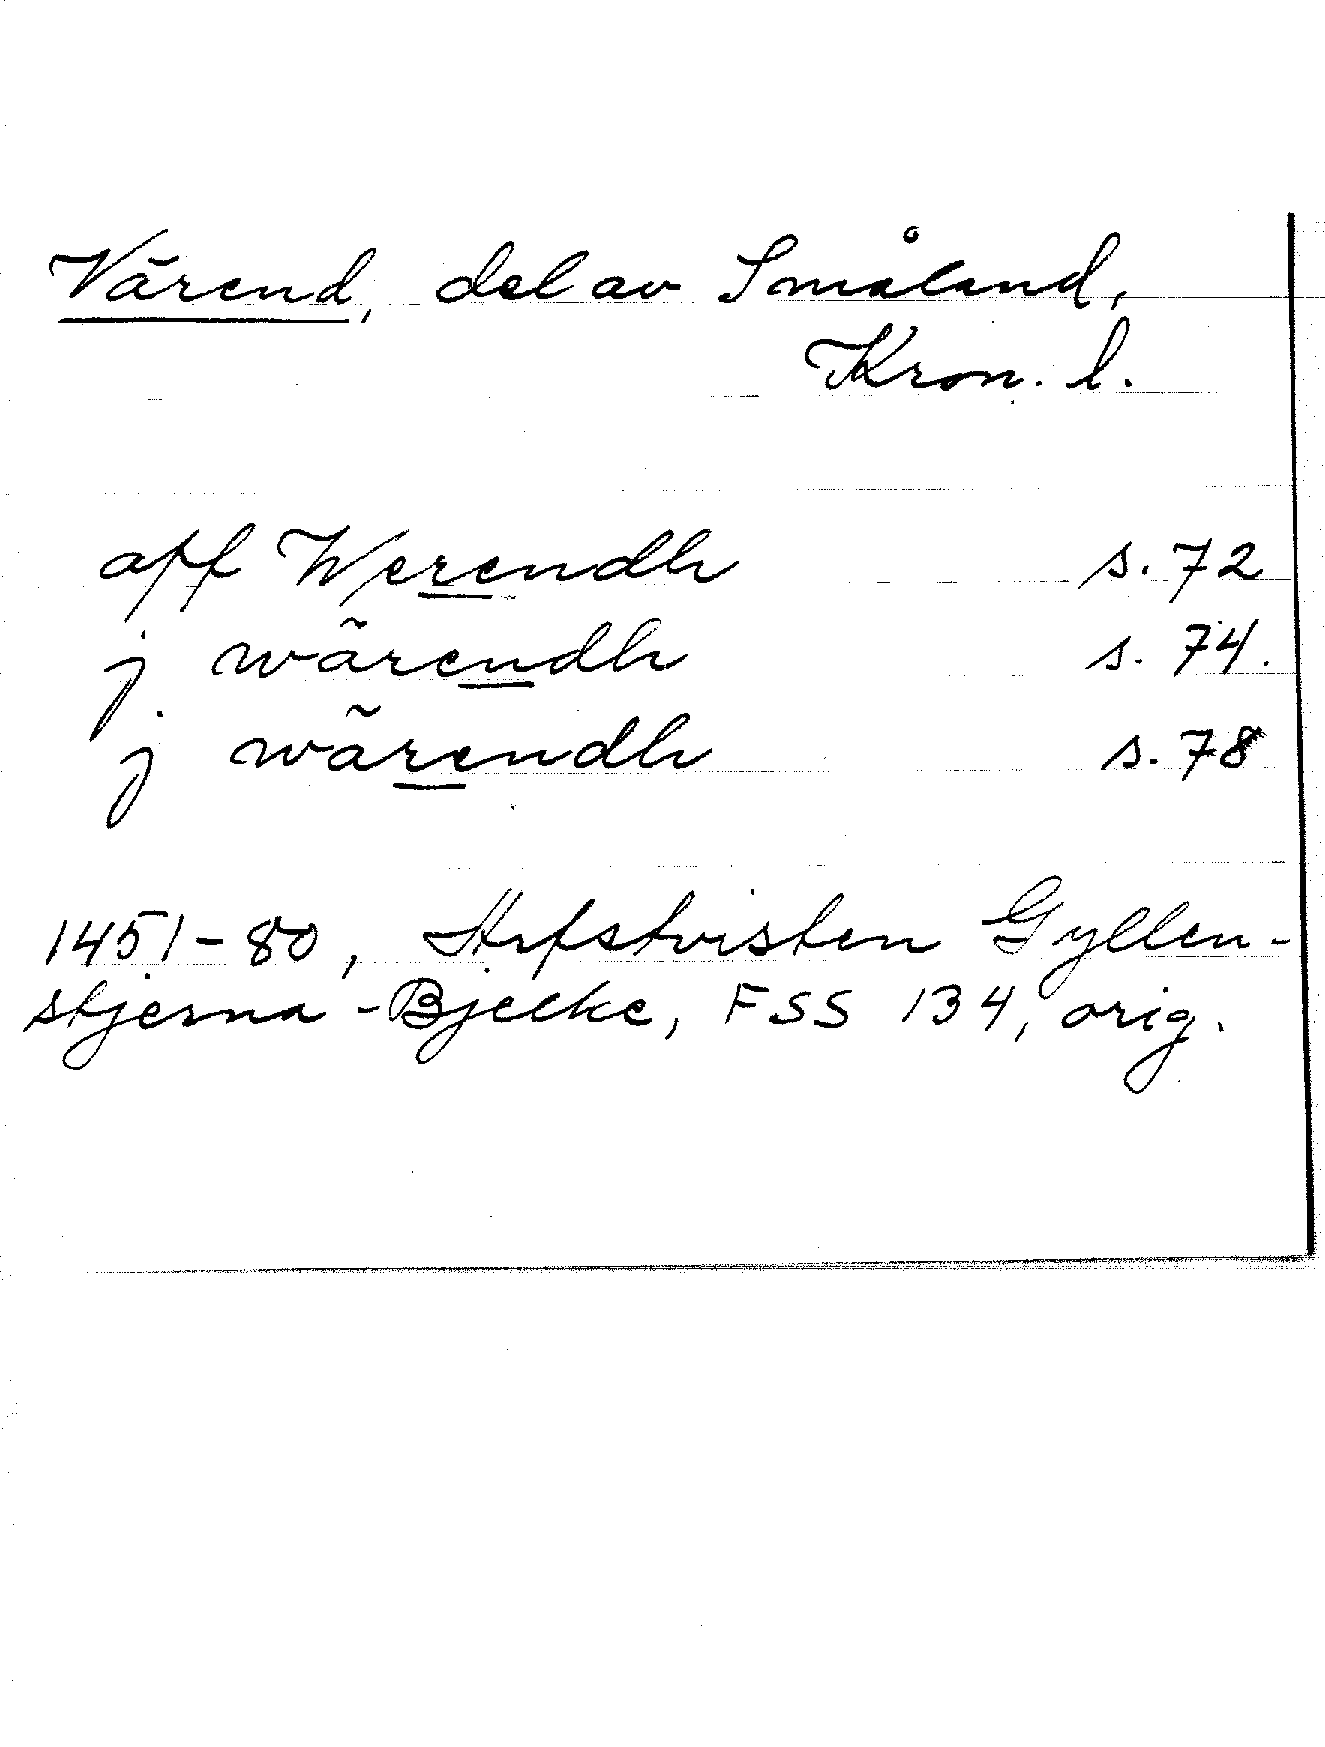 Värend, del av Småland,
Kron. l.
aff Werendh s. 72
j wärendh s. 74.
j wärendh s. 78
1451-80, Arfstvisten Gyllen-
stjerna - Bjelke, FSS 134, orig.